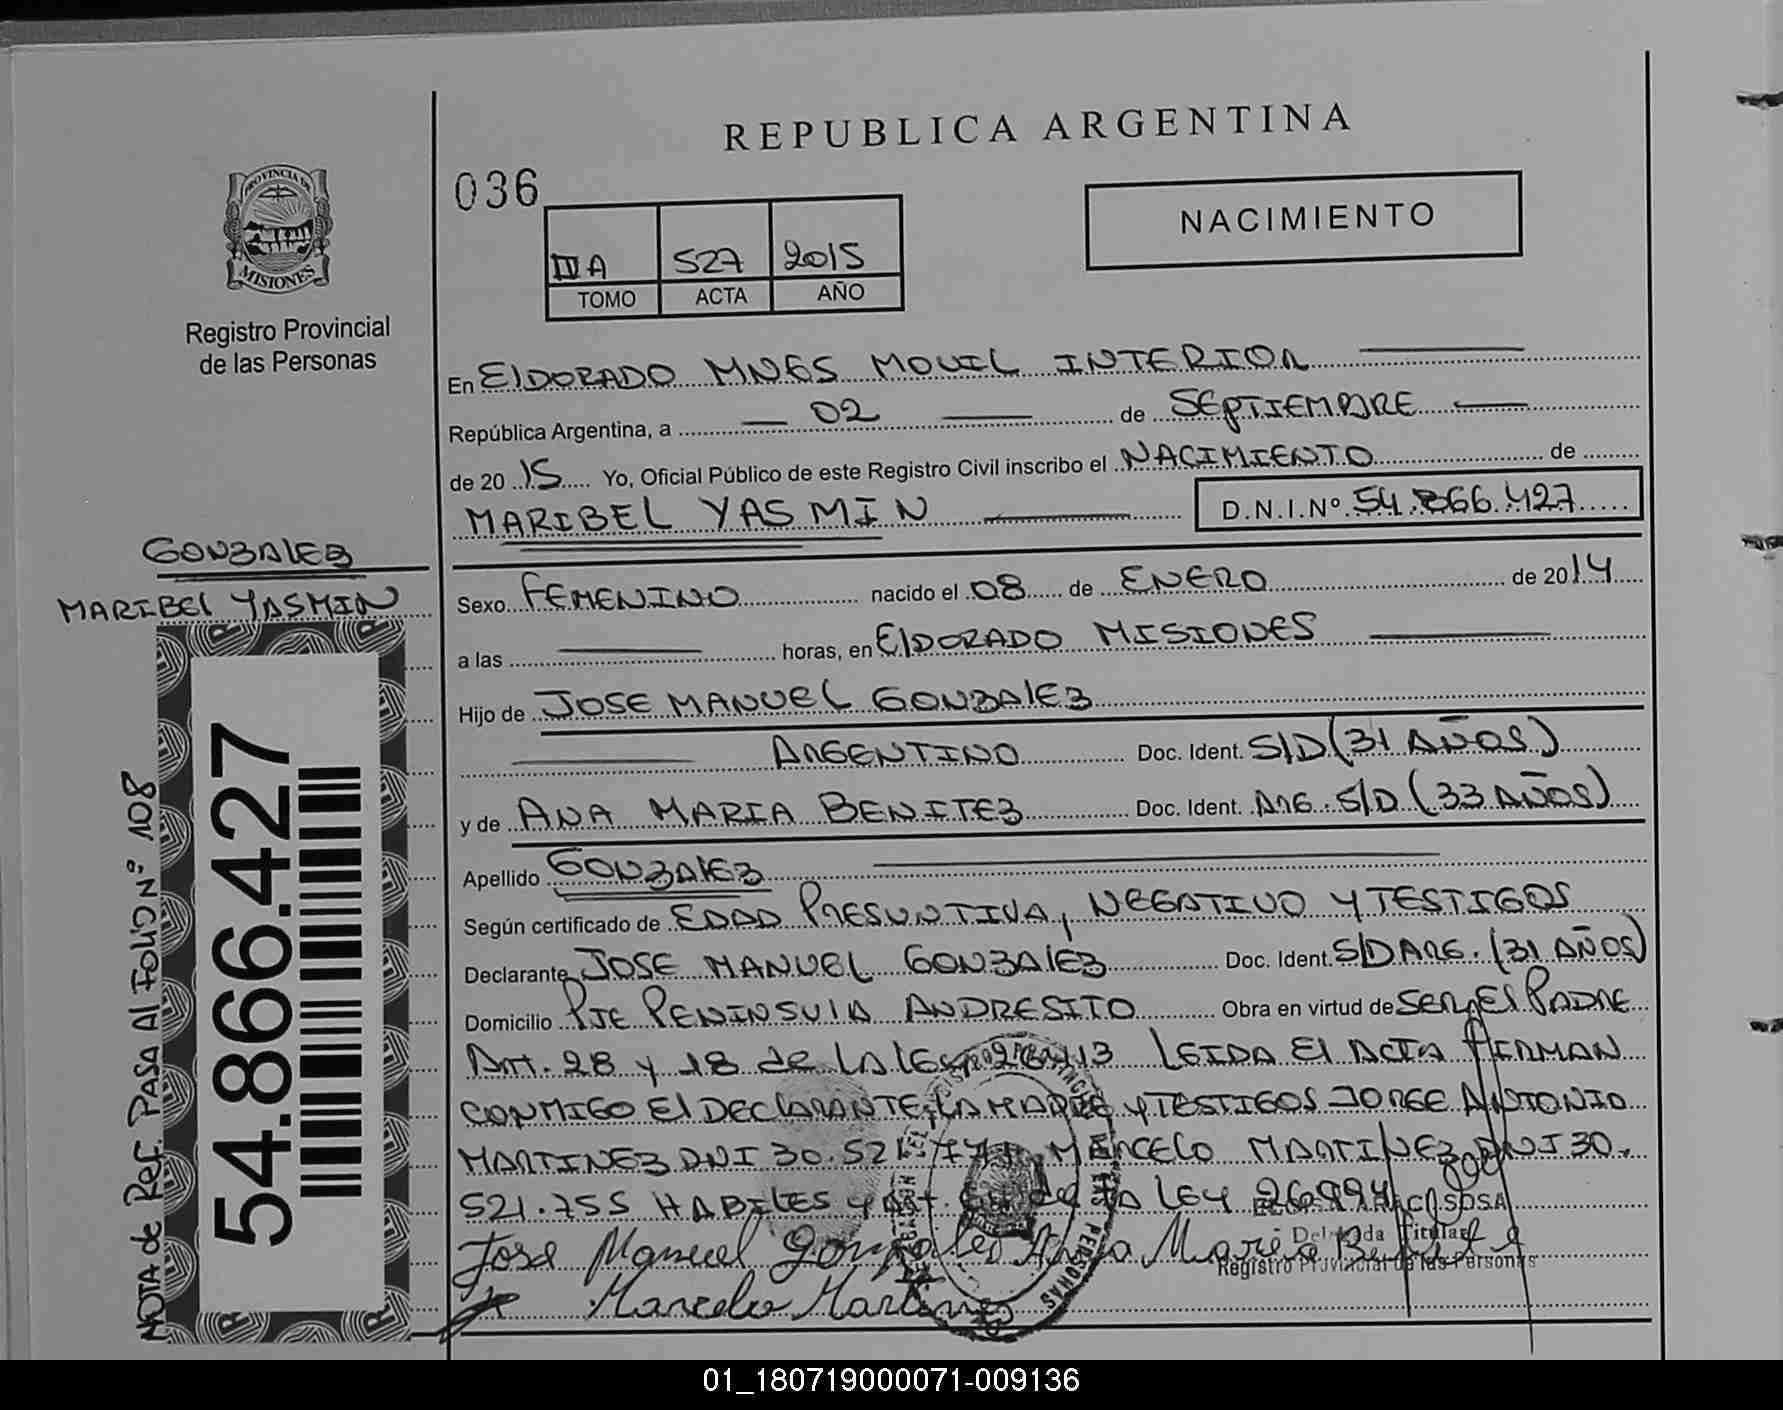 REPUBLICA ARGENTINA
PROVINCIA DE
MISIONES
Registro Provincial
de las Personas
036
NACIMIENTO
III A 527 2015
TOMO ACTA AÑO
En ElDORADO MNES MOVIL INTERIOR
República Argentina, a 02 de SEPTIEMBRE
de 2015 Yo, Oficial Público de este Registro Civil inscribo el NACIMIENTO de
MARIBEL YASMIN D.N.I.Nº 54.866.427
GONZALEZ
MARIBEL YASMIN
Sexo FEMENINO nacido el 08 de ENERO de 2014
a las horas, en ElDORADO MISIONES
Hijo de JOSE MANUEL GONZALEZ
ARGENTINO Doc. Ident. S/D (31 AÑOS)
y de ANA MARIA BENITEZ Doc. Ident. ARG. S/D (33 AÑOS)
Apellido GONZALEZ
Según certificado de EDAD PRESUNTIVA, NEGATIVO Y TESTIGOS
Declarante JOSE MANUEL GONZALEZ Doc. Ident. S/D ARG. (31 AÑOS)
Domicilio PJE PENINSULA ANDRESITO Obra en virtud de SER El PADRE
Art. 28 y 18 de LA LEY LEIDA El ACTA FIRMAN
CONMIGO El DECLARANTE, LA MADRE Y TESTIGOS JORGE ANTONIO
MARTINEZ DNI 30.521. MARCELO MARTINEZ DNI 30.
521.755 HABILES Y Art. de la LEY 26.994
SOSA
Delegada Titular
Registro Provincial de las Personas
Jose Manuel Gonzalez Ana Maria Benitez
Marcelo Martinez
54.866.427
NOTA de Ref. PASA Al FOLIO Nº 108
01_180719000071-009136